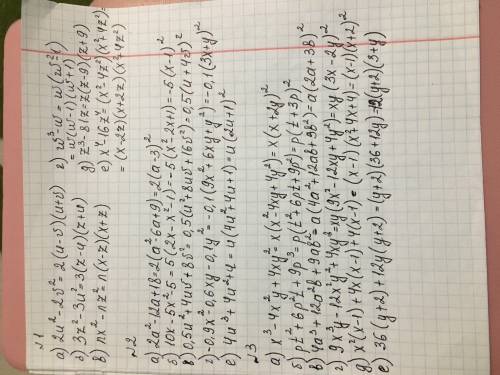 №1
а) 2u²-2v²=2(u-v)(u+v)
б) 3z²-3u²=3(z-u)(z+u)
в) nx²-nz²=n(x-z)(x+z)
г) w³-w=w(w²-1)
=w(w-1)(w+1)
д) z³-81z=z(z-9)(z+9)
е) x⁴-16z⁴=(x²-4z²)(x²+4z²)=
=(x-2z)(x+2z)(x²+4z²)
№2
а) 2a²-12a+18=2(a²-6a+9)=2(a-3)²
б) 10x-5x²-5=5(2x-x²-1)=-5(x²-2x+1)=-5(x-1)²
в) 0,5u²+4uv+8v²=0,5(u²+8uv+16v²)=0,5(u+4v)²
г) -0,9x²-0,6xy-0,1y²=-0,1(9x²+6xy+y²)=-0,1(3x+y)²
е) 4u³+4u²+u=u(4u²+4u+1)=u(2u+1)²
№3
а) x³-4x²y+4xy²=x(x²-4xy+4y²)=x(x+2y)²
б) pt²+6p²t+9p³=p(t²+6pt+9p²)=p(t+3p)²
в) 4a³+12a²b+9ab²=a(4a²+12ab+9b²)=a(2a+3b)²
г) 9x³y-12x²y²+4xy³=xy(9x²-12xy+4y²)=xy(3x-2y)²
д) x²(x-1)+4x(x-1)+4(x-1)=(x-1)(x²+4x+4)=(x-1)(x+2)²
е) 36(y+2)+12y(y+2)=(y+2)(36+12y)=12(y+2)(3+y)